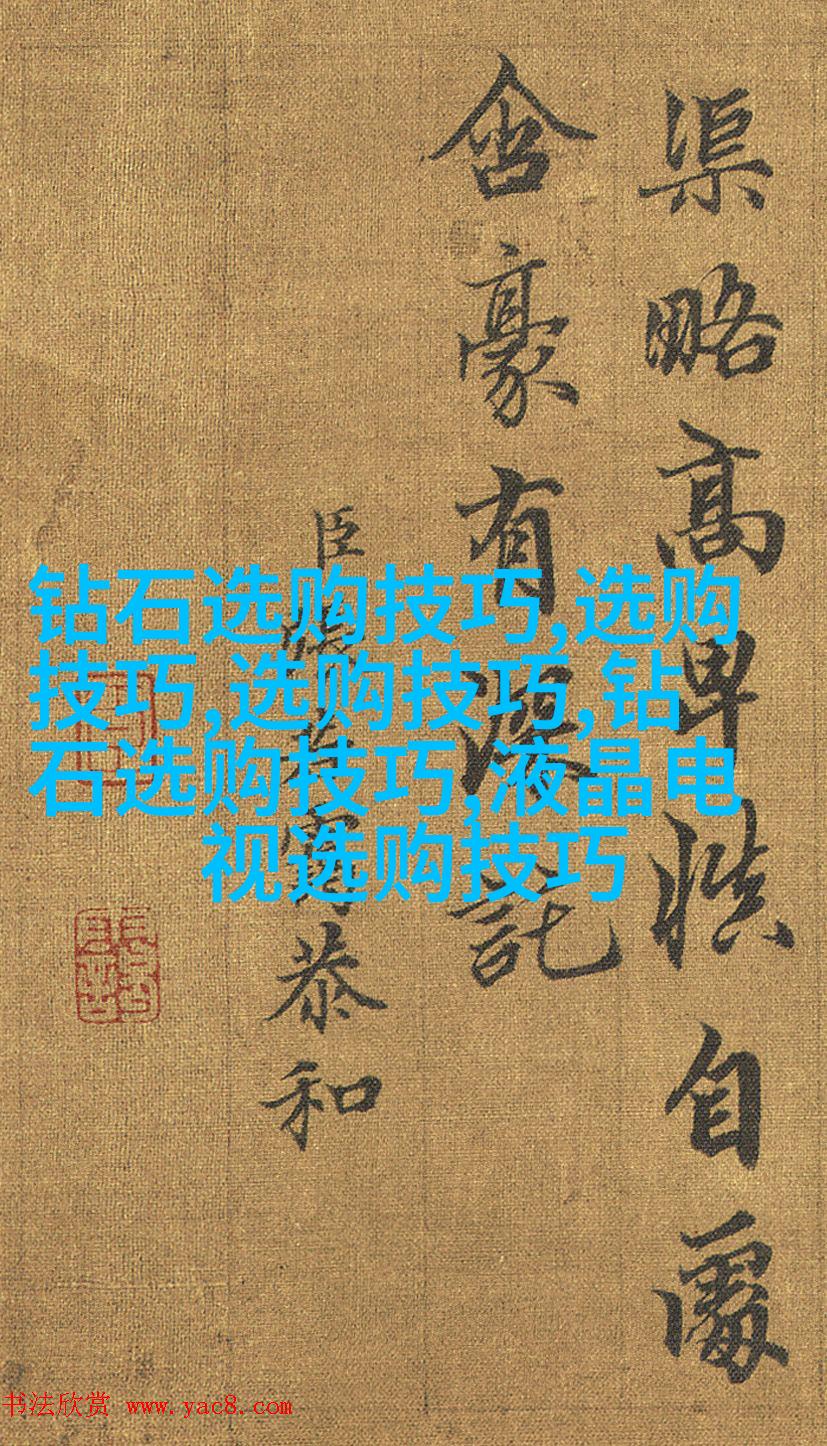 渠略高卑慎自
含豪有深託
臣張若靄恭和
钻石选购技巧,选购
技巧,选购技巧,钻
石选购技巧,液晶电
视选购技巧
书法欣赏 www.yac8.com